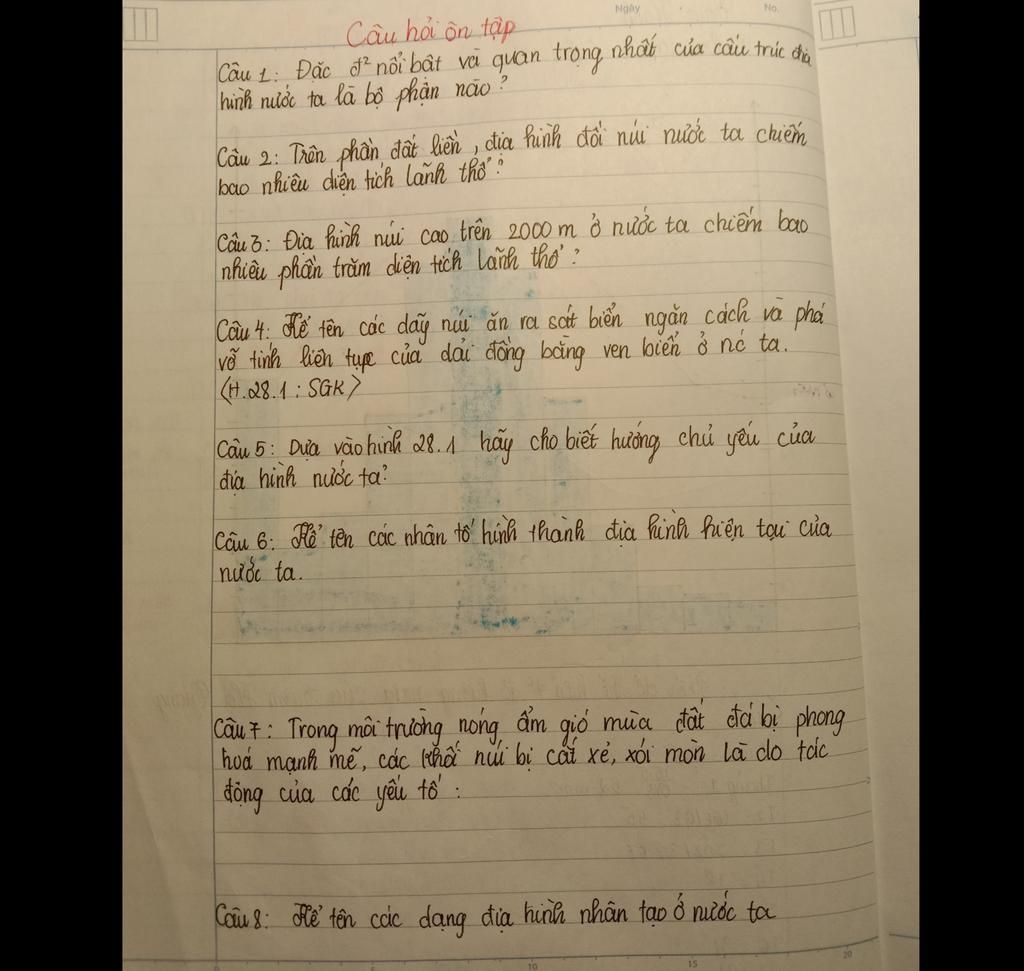 Ngày No.
Câu hỏi ôn tập
Câu 1: Đặc đ² nổi bật và quan trọng nhất của cấu trúc địa
hình nước ta là bộ phận nào?
Câu 2: Trên phần đất liền, địa hình đồi núi nước ta chiếm
bao nhiêu diện tích lãnh thổ?
Câu 3: Địa hình núi cao trên 2000 m ở nước ta chiếm bao
nhiêu phần trăm diện tích lãnh thổ?
Câu 4: Kể tên các dãy núi ăn ra sát biển ngăn cách và phá
vỡ tính liên tục của dải đồng bằng ven biển ở nc ta.
(H.28.1: SGK)
Câu 5: Dựa vào hình 28.1 hãy cho biết hướng chủ yếu của
địa hình nước ta?
Câu 6: Kể tên các nhân tố hình thành địa hình hiện tại của
nước ta.
Câu 7: Trong môi trường nóng ẩm gió mùa đất đá bị phong
hoá mạnh mẽ, các khối núi bị cắt xẻ, xói mòn là do tác
động của các yếu tố:
Câu 8: Kể tên các dạng địa hình nhân tạo ở nước ta
10 15 20